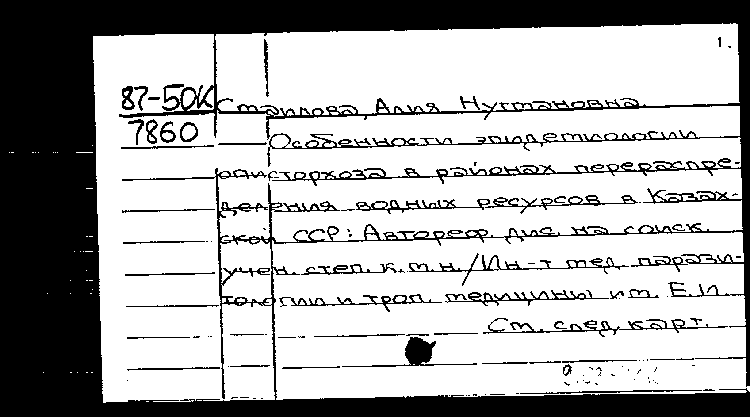 1.
87-50К Смаилова, Алия Нугмановна.
7860 Особенности эпидемиологии
описторхоза в районах перераспре-
деления водных ресурсов в Казах-
ской ССР: Автореф. дис. на соиск.
учен. степ. к.м.н./Ин-т мед. парази-
тологии и троп. медицины им. Е.И.
См. след. карт.